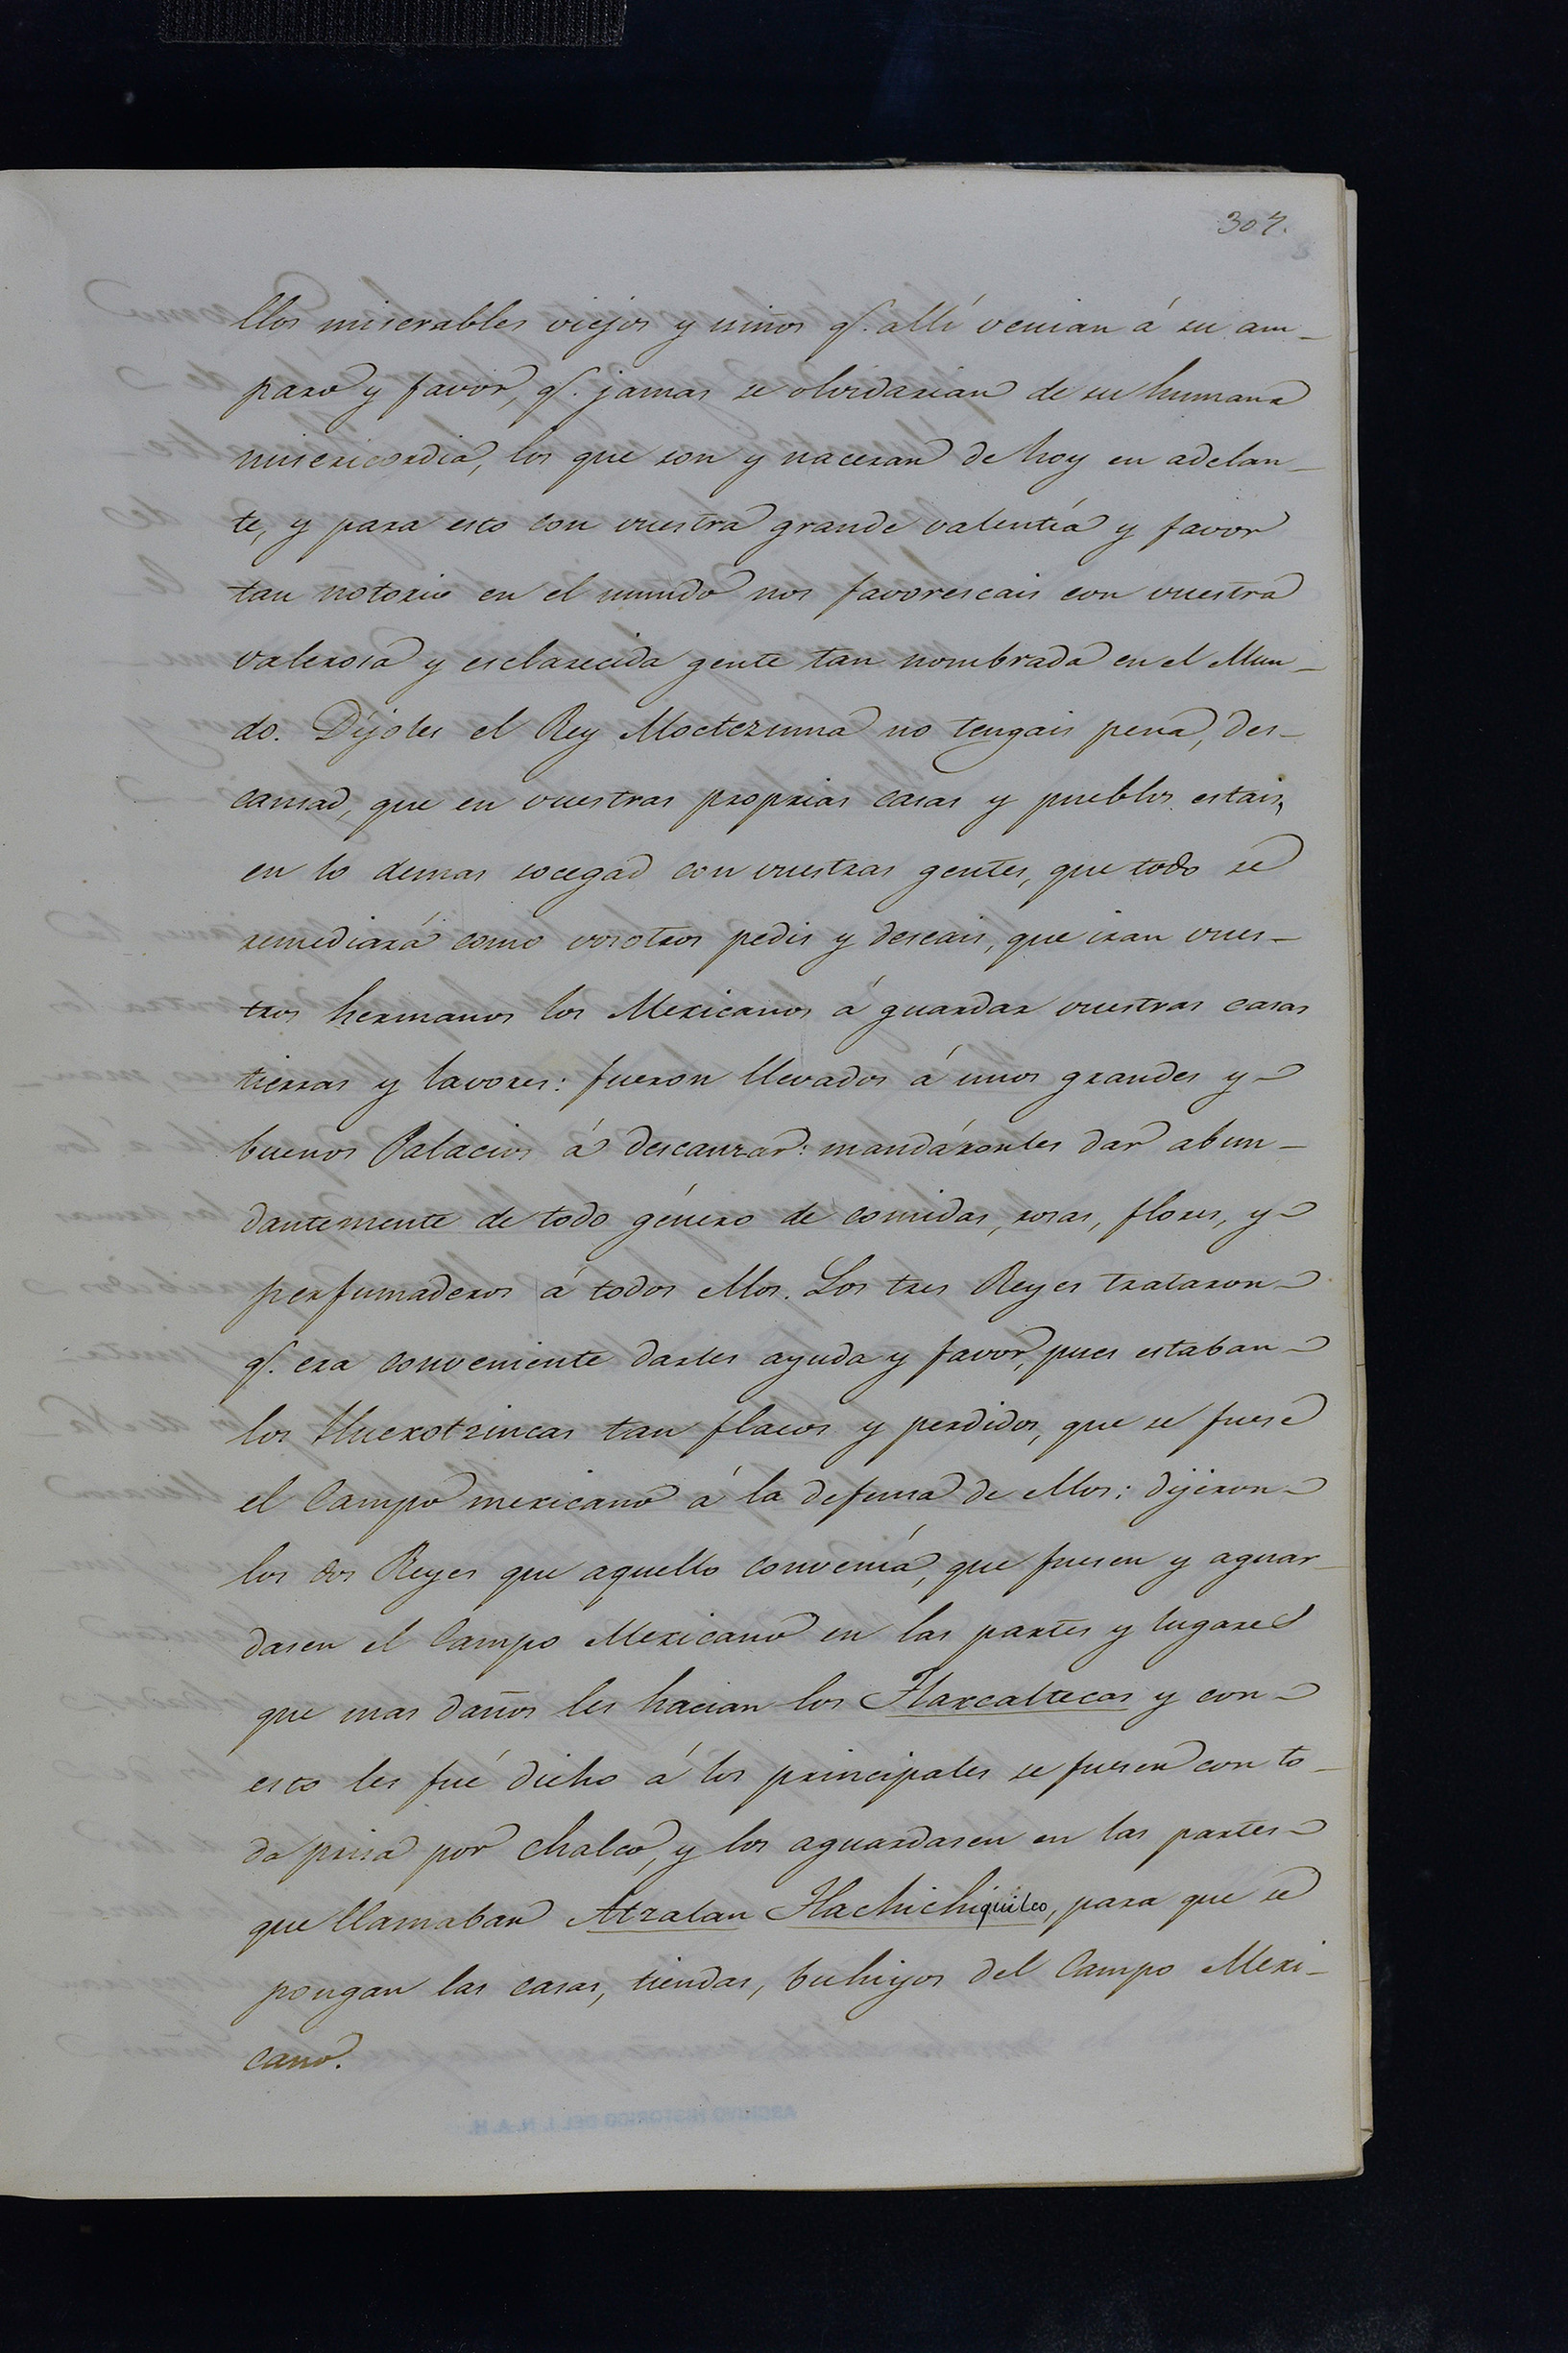 307.
llos miserables viejos y niños q.ͤ allí venian á su am-
paro y favor, q.ͤ jamas se olvidarian de su humana
misericordia, los que son y naceran de hoy en adelan-
te, y para esto con vuestra grande valentía y favor
tan notorio en el mundo nos favorescais con vuestra
valerosa y esclarecida gente tan nombrada en el Mun-
do. Díjoles el Rey Moctezuma no tengais pena, des-
cansad, que en vuestras proprias casas y pueblos estais,
en lo demas socegad con vuestras gentes, que todo se
remediará como vosotros pedis y deseais, que iran vues-
tros hermanos los Mexicanos á guardar vuestras casas
tierras y lavores: fueron llevados á unos grandes y
buenos Palacios á descanzar: mandáronles dar abun-
dantemente de todo género de comidas, rosas, flores, y
perfumaderos á todos ellos. Los tres Reyes trataron
q.ͤ era conveniente darles ayuda y favor, pues estaban
los Huexotzincas tan flacos y perdidos, que se fuese
el Campo mexicano á la defensa de ellos: dijeron
los dos Reyes que aquello convenía, que fuesen y aguar-
dasen el Campo Mexicano en las partes y lugares
que mas daños les hacian los Tlaxcaltecas y con
esto les fué dicho á los principales se fuesen con to-
da prisa por Chalco, y los aguardasen en las partes
que llamaban Atzalan Tlachichiquilco, para que se
pongan las casas, tiendas, buhiyos del Campo Mexi-
cano.
ARCHIVO HISTORICO DEL I. N. A. H.